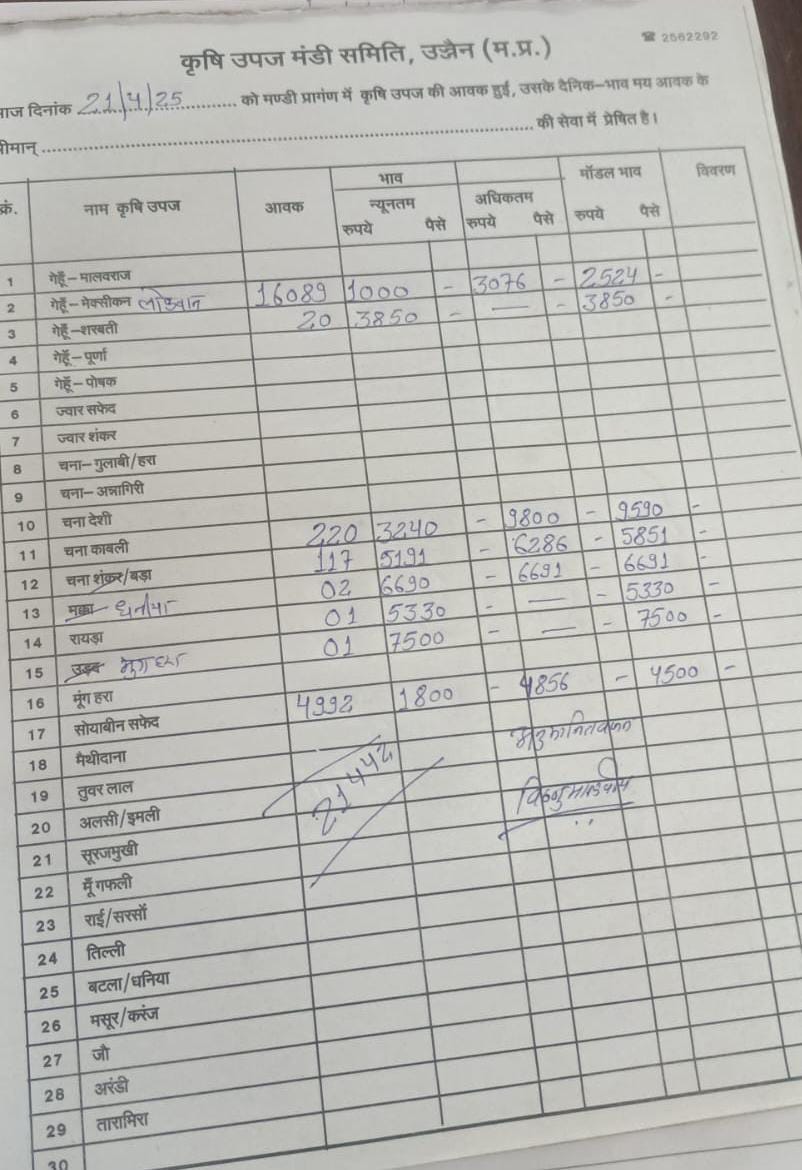 ☎ 2562292
कृषि उपज मंडी समिति, उज्जैन (म.प्र.)
आज दिनांक 21/4/25 को मण्डी प्रागंण में कृषि उपज की आवक हुई, उसके दैनिक-भाव मय आवक के
श्रीमान् की सेवा में प्रेषित है।
क्रं. नाम कृषि उपज आवक भाव मॉडल भाव विवरण
न्यूनतम अधिकतम
रुपये पैसे रुपये पैसे रुपये पैसे
1 गेहूँ-मालवराज
2 गेहूँ-मेक्सीकन लोकवान 16089 1000 - 3076 - 2524 -
3 गेहूँ-शरबती 20 3850 - — - 3850 -
4 गेहूँ-पूर्णा
5 गेहूँ-पोषक
6 ज्वार सफेद
7 ज्वार शंकर
8 चना-गुलाबी/हरा
9 चना-अन्नागिरी
10 चना देशी
11 चना काबली 220 3240 - 9800 - 9590 -
12 चना शंकर/बड़ा 117 5191 - 6286 - 5851 -
13 मक्का धनीया 02 6690 - 6691 - 6691 -
14 रायड़ा 01 5330 - — - 5330 -
15 उड़द मुंग हरा 01 7500 - — - 7500 -
16 मूंग हरा
17 सोयाबीन सफेद 4992 1800 - 4856 - 4500 -
18 मैथीदाना
19 तुवर लाल
20 अलसी/इमली
21442
21 सूरजमुखी
22 मूँगफली
23 राई/सरसों
24 तिल्ली
25 बटला/धनिया
26 मसूर/करंज
27 जौ
28 अरंडी
29 तारामिरा
30